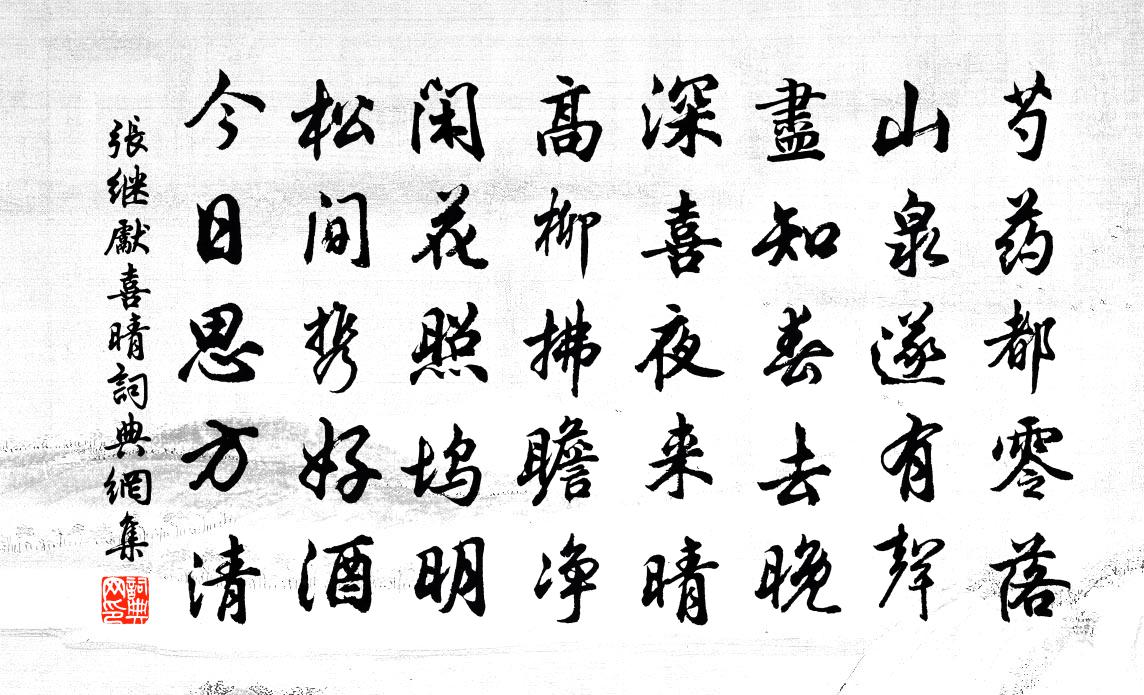 芍药都零落
山泉遂有聲
盡知春去晚
深喜夜来晴
高柳拂瞻净
闲花照坞明
松間携好酒
今日思方清
張继獻喜晴詞典網集
詞典网印